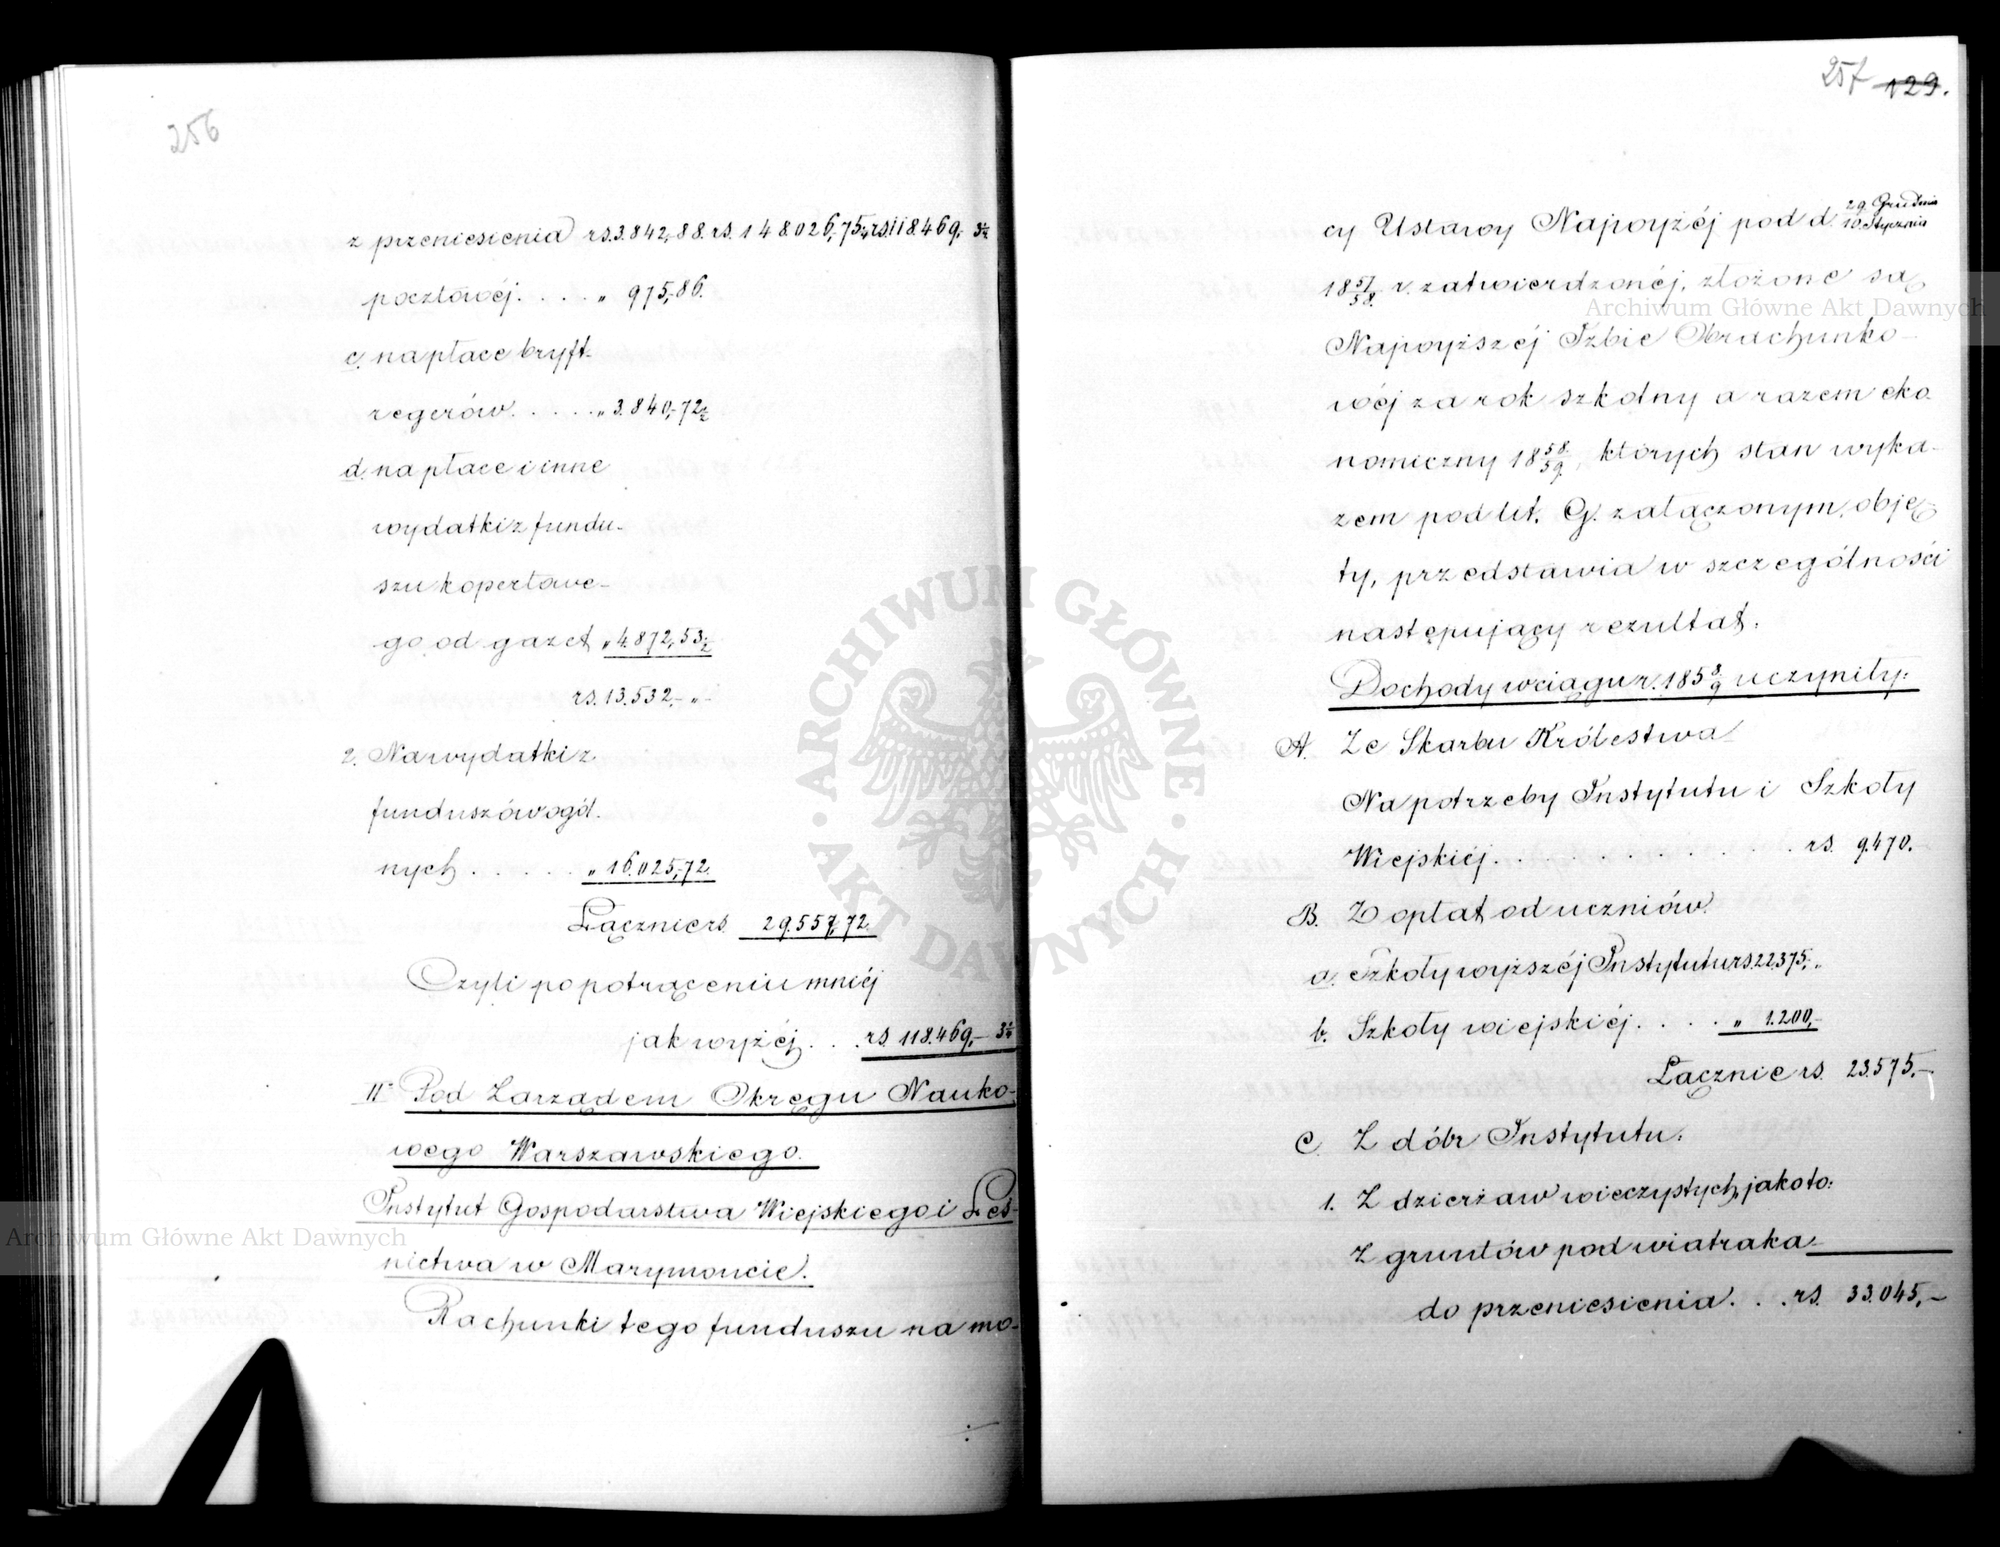 256
z przeniesienia rs. 3.842,88. rs. 148026,75 rs. 118.469,- 3½
pocztowéj. . . . „ 975,86.
c. na płace bryft-
regerów. . . . . „ 3.840,72½
d. na płace i inne
wydatki z fundu-
szu kopertowe-
go od gazet „ 4.872,53½
rs. 13.532,- „ -
2. Na wydatki z
funduszów ogól-
nych . . . . . „ 16.025,72.
Łącznie rs. 29.557,72.
Czyli po potrąceniu mniéj
jak wyżéj. . . rs. 118.469,- 3½
11- Pod Zarządem Okręgu Nauko-
wego Warszawskiego.
Instytut Gospodarstwa Wiejskiego i Leś-
nictwa w Marymoncie.
Rachunki tego funduszu na mo-
257 129.
cy Ustawy Najwyżéj pod d. 29 Grudnia / 10 Stycznia
18 57/58. r. zatwierdzonéj, złożone są
Najwyższéj Izbie Obrachunko-
wéj za rok szkolny a razem eko-
nomiczny 18 58/59., których stan wyka-
zem pod lit. G. załączonym, obję-
ty, przedstawia w szczególności
następujący rezultat.
Dochody w ciągu r. 185 8/9 uczyniły:
A. Ze Skarbu Królestwa
Na potrzeby Instytutu i Szkoły
Wiejskiéj. . . . . . . . . . . . rs. 9.470.
B. Z opłat od uczniów.
a. Szkoły wyższéj Instytutu rs. 22.375,- „
b. Szkoły wiejskiéj. . . . „ 1.200,-
Łącznie rs. 23.575,-
C. Z dóbr Instytutu.
1. Z dzierżaw wieczystych, jakoto:
Z gruntów pod wiatraka-
do przeniesienia. . . rs. 33.045,-
Archiwum Główne Akt Dawnych
Archiwum Główne Akt Dawnych
ARCHIWUM GŁÓWNE · AKT DAWNYCH ·